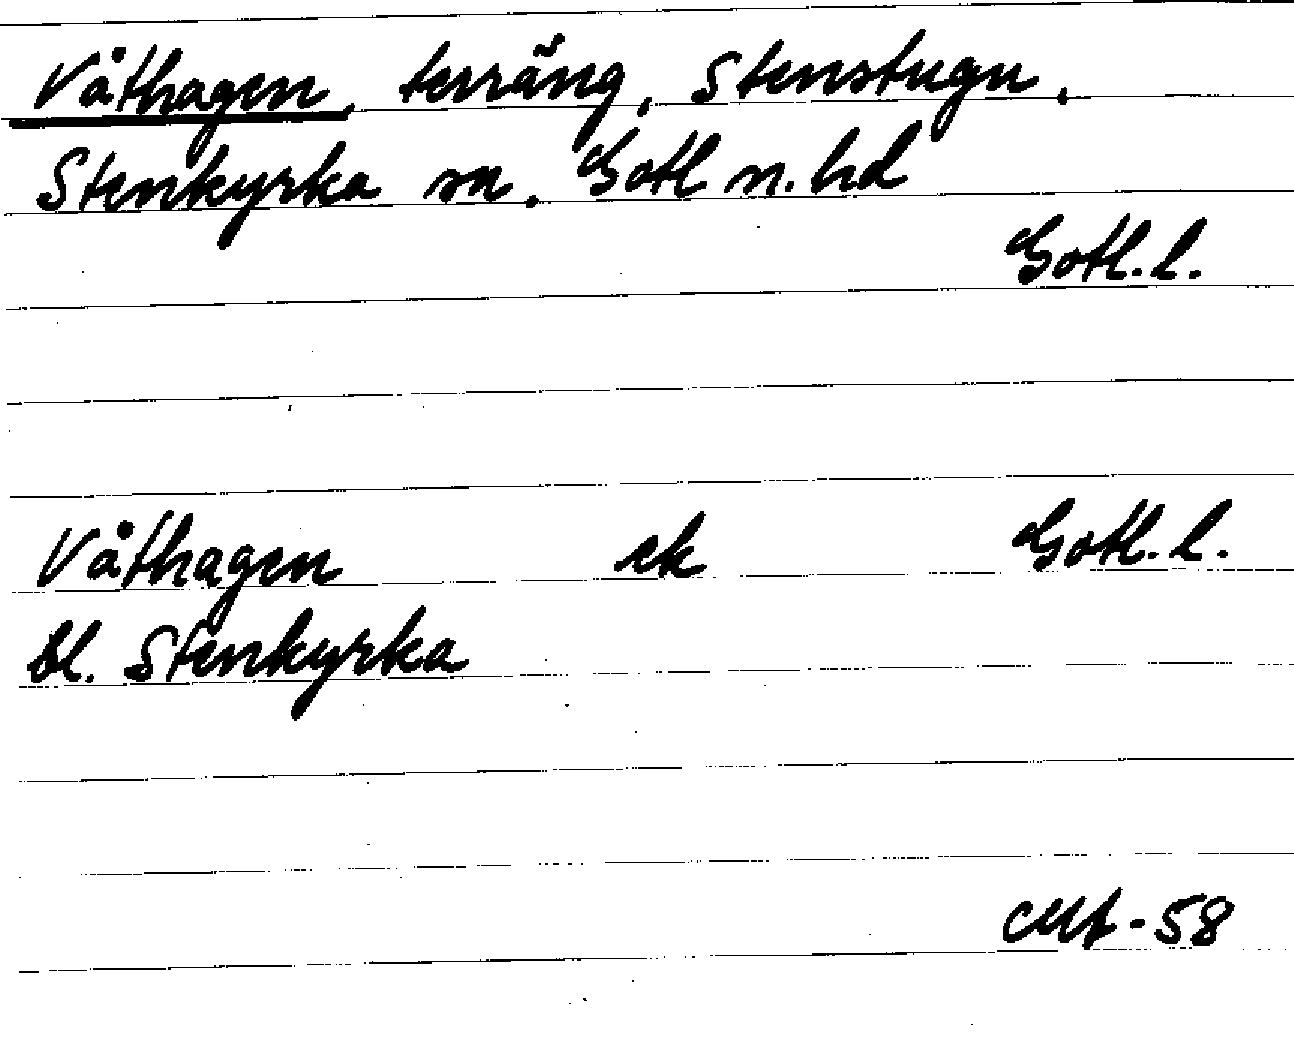 Våthagen, terräng, Stenstugu,
Stenkyrka sn. Gotl n. hd
Gotl. l.
Våthagen ek Gotl. l.
Bl. Stenkyrka
-58